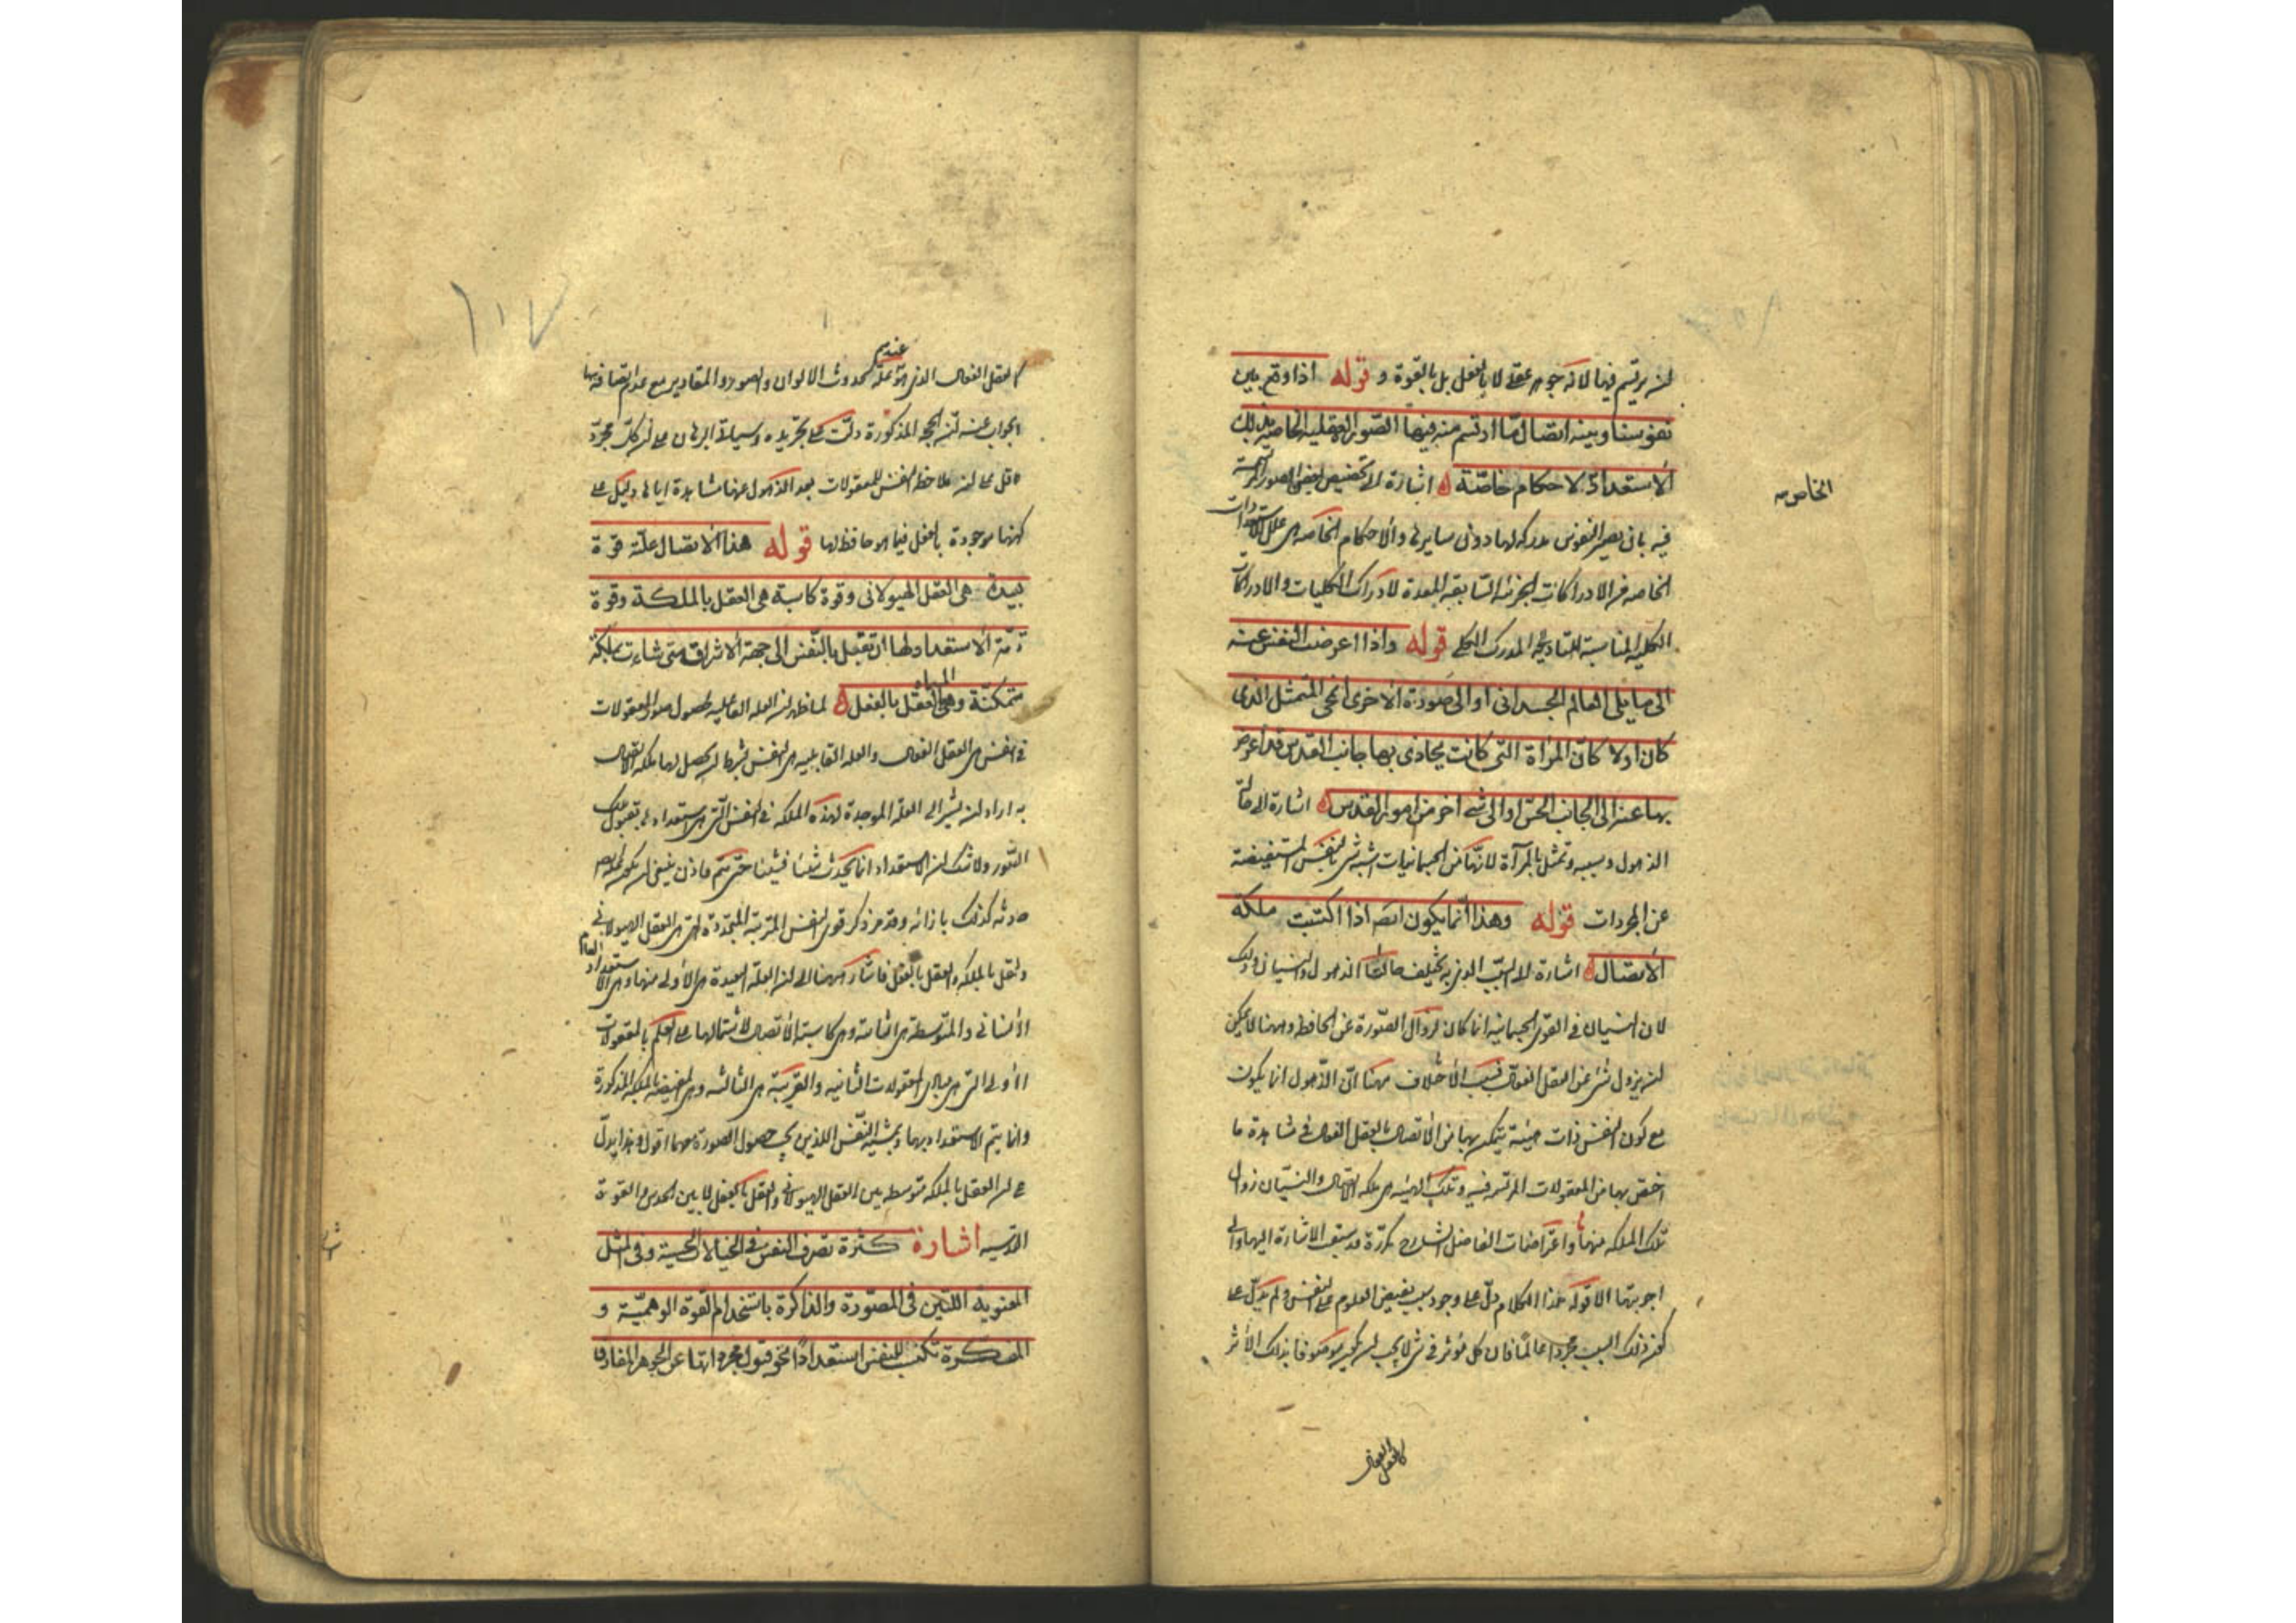 ان يرتسم فيها لا انه جوهر عقلى لا بالفعل بل بالقوة و قوله اذا وقع بين
نفوسنا وبينه اتصال ما ارتسم منه فيها الصور العقلية الخاصة بذلك
الاستعداد لاحكام خاصة اشارة الى تخصيص بعض الصور المرتسمة
فيه بان يصير النفوس مدركة لها دون سايرها والاحكام الخاصة هى علل الاستعدادات
الخاصة من الادراكات الجزئية السابقة المعدة لادراك الكليات والادراكات
الكلية المناسبة للتادية الى المدرك الكلى قوله واذا اعرضت النفس عنه
الى ما يلى العالم الجسدانى او الى صورة الاخرى انمحى المتمثل الذى
كان اولا كان المرآة التى كانت يحاذى بها جانب القدس قد اعرض
بها عنه الى الجانب الحس او الى شئ اخر من امور القدس اشارة الى حالة
الذهول وسببه وتمثل بالمرآة لانها من الجسمانيات اشبه شئ بالنفس المستفيضة
عن المجردات قوله وهذا انما يكون ايضا اذا اكتسبت ملكة
الاتصال اشارة الى السبب الذى به يختلف حالتا الذهول والنسيان وذلك
لان النسيان فى القوى الجسمانية انما كان لزوال الصورة عن الحافظ وههنا لا يمكن
ان يزول شئ عن العقل الفعال فسبب الاختلاف ههنا ان الذهول انما يكون
مع كون النفس ذات هيئة يتمكن بها من الاتصال بالعقل الفعال فى مشاهدة ما
اختص بها من المعقولات المرتسمة فيه وتلك الهيئة هى ملكة الاتصال والنسيان زوال
تلك الملكة عنها واعتراضات الفاضل الشارح مكررة قد سبقت الاشارة اليها والى
اجوبتها الا قوله هذا الكلام دل على وجود سبب يفيض العلوم على النفس ولم يدل على
كون ذلك السبب مجردا عالما فان كل مؤثر فى شئ لا يجب ان يكون موصوفا بذلك الاثر
كالعقل الفعال
الخاصة
كالعقل الفعال الذى هو علة عندهم لحدوث الالوان والصور والمقادير مع عدم اتصافه بها
والجواب عنه ان الحجج المذكورة دلت على تجريده وسياتى البرهان على ان كل مجرد
عاقل على ان ملاحظة النفس للمعقولات بعد الذهول عنها مشاهدة اياها دليل على
كونها موجودة بالفعل فيما هو حافظ لها قوله هذا الاتصال علته قوة
بعيدة هى العقل الهيولانى وقوة كاسبة هى العقل بالملكة وقوة
تامة الاستعداد لها ان تقبل بالنفس الى جهة الاشراق متى شاءت بملكة
متمكنة وهى المسماة العقل بالفعل لما ظهر ان العلة الفاعلية لحصول صور المعقولات
فى النفس هى العقل الفعال والعلة القابلية هى النفس بشرط ان يحصل لها ملكة الاتصال
به اراد ان يشير الى العلة الموجدة لهذه الملكة فى النفس التى هى استعدادها بقبول تلك
الصور ولا شك ان الاستعداد انما يحدث شيئا فشيئا حتى يتم فاذن ينبغى ان يكون علته
حادثة كذلك بازائه وقد مر ذكر قوى النفس المترتبة المتجددة التى هى العقل الهيولانى
والعقل بالملكة والعقل بالفعل فاشار ههنا الى ان العلة البعيدة هى الاولى منها وهى الاستعداد العام
الانسانى والمتوسطة هى الثانية وهى كاسبة الاتصال لاشتمالها على العلم بالمعقولات
الاولى التى هى مبادى المعقولات الثانية والقريبة هى الثالثة وهى المفيضة بالملكة المذكورة
وانما يتم الاستعداد بها وبمشية النفس اللذين يجب حصول الصورة معهما اقول وهذا يدل
على ان العقل بالملكة متوسطة بين العقل الهيولانى والعقل بالفعل لا بين الحدس والقوة
القدسية اشارة كثرة تصرف النفس فى الخيالات الحسية وفى المثل
المعنوية اللتين فى المصورة والذاكرة باستخدام القوة الوهمية و
المفكرة تكسب للنفس استعدادا نحو قبول مجرداتها عن الجوهر المفارق
١١٧